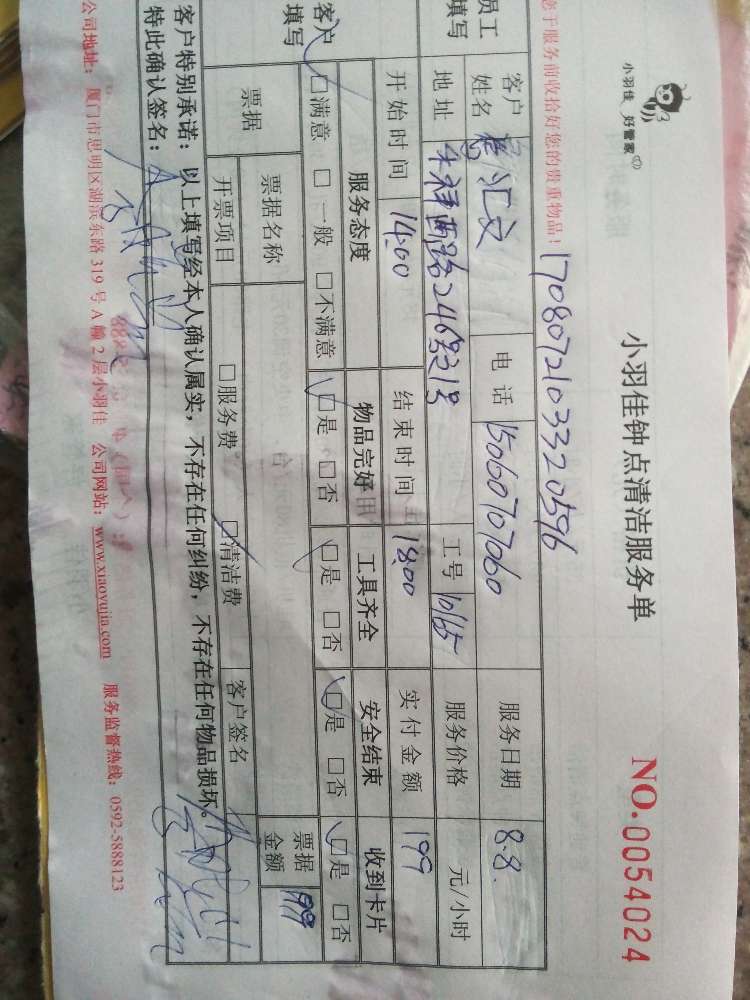 小羽佳 好管家
小羽佳钟点清洁服务单
NO.0054024
您于服务前收拾好您的贵重物品!
17080721033320596
员工填写
客户姓名 汇文 电话 15060707060 服务日期 8.8.
地址 禾祥西路246号313 工号 10165 服务价格 元/小时
开始时间 14:00 结束时间 18:00 实付金额 199
客户填写
服务态度 物品完好 工具齐全 安全结束 收到卡片
☑满意 □一般 □不满意 ☑是 □否 ☑是 □否 ☑是 □否 ☑是 □否
票据 票据名称 票据金额 199
开票项目 □服务费 ☑清洁费 客户签名
客户特别承诺:以上填写经本人确认属实,不存在任何纠纷,不存在任何物品损坏。
特此确认签名:
公司地址:厦门市思明区湖滨东路319号A幢2层小羽佳 公司网站:www.xiaoyujia.com 服务监督热线:0592-5888123